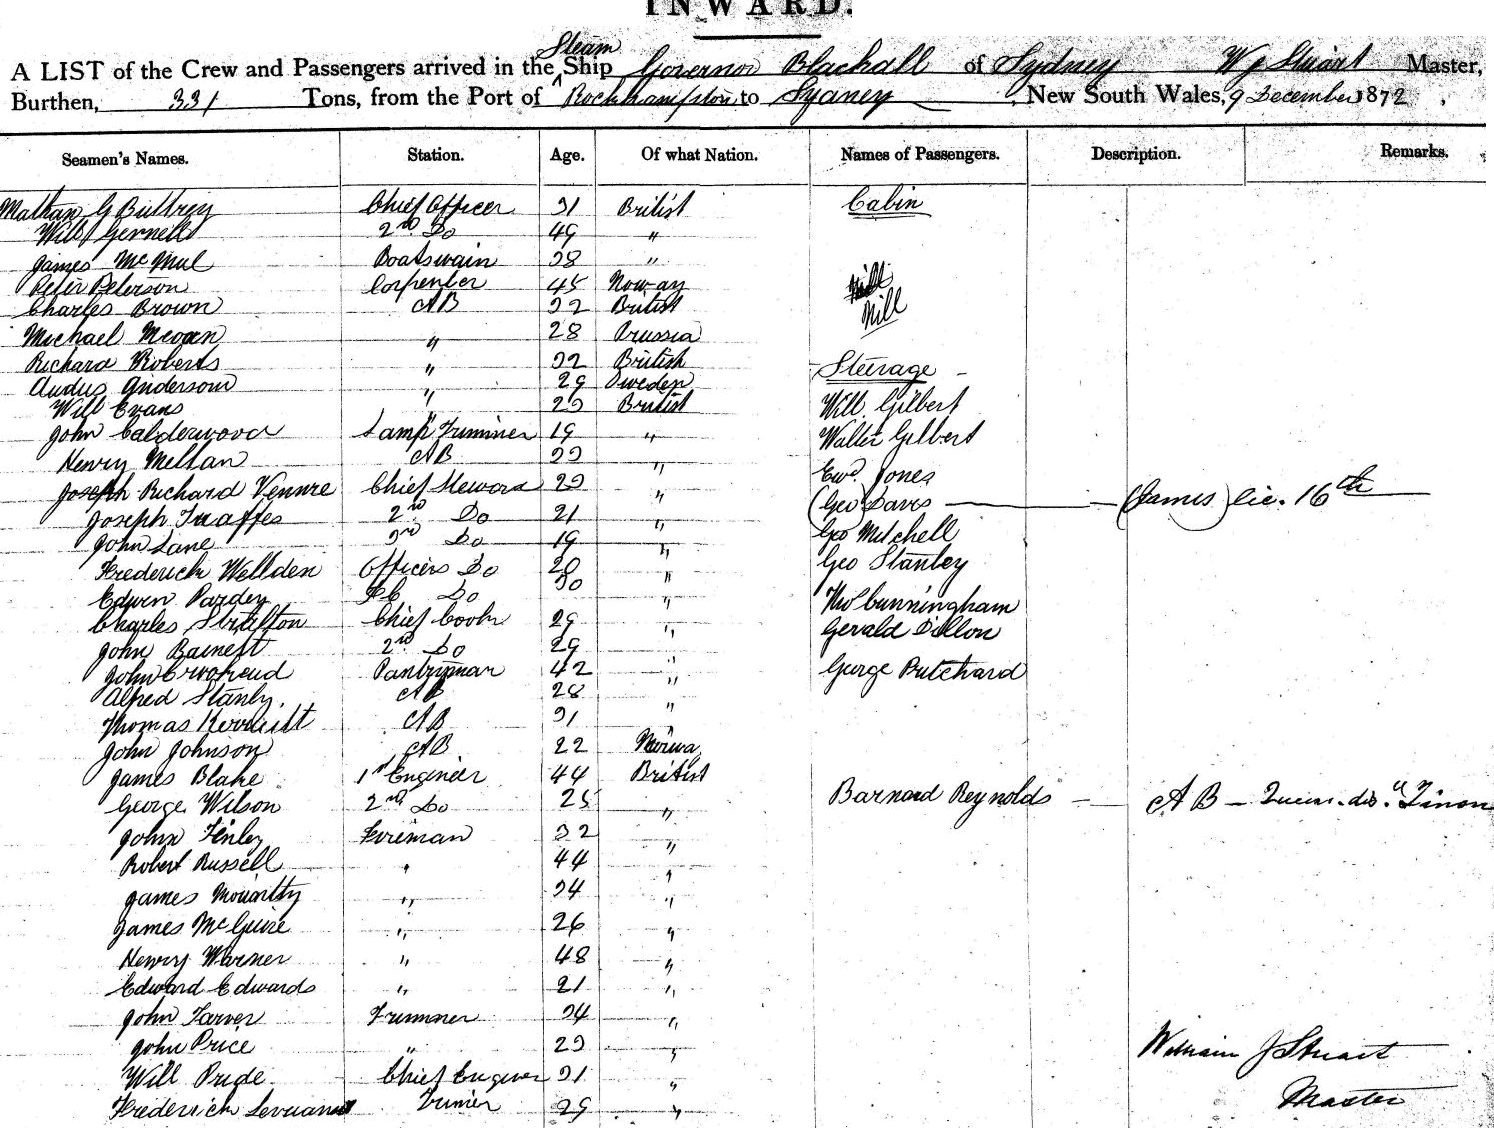 INWARD.
Steam
A LIST of the Crew and Passengers arrived in the Ship Governor Blackall of Sydney W J Stuart Master,
Burthen, 331 Tons, from the Port of Rockhampton to Sydney, New South Wales, 9 December 1872,
Seamen's Names. Station. Age. Of what Nation. Names of Passengers. Description. Remarks.
Nathan G Buttrey Chief Officer 31 British Cabin
Will 2nd Do 49 "
James McMul Boatswain 38 "
Peter Peterson Carpenter 45 Norway Nill
Charles Brown AB 32 British Nill
Michael " 28 Prussia
Richard Roberts " 32 British Steerage
Andersson " 29 Sweden
Will Evans " 23 British Will. Gilbert
John Calderwood Lamp Trimmer 19 " Walter Gilbert
Henry Mellan AB 23 " Ewd. Jones
Joseph Richard Chief Steward 23 " (Geo Davis (James) lic. 16th
Joseph 2nd Do 21 " Geo Mitchell
John Lane 3rd Do 19 " Geo Stanley
Frederick Wellden Officers Do 20 "
Edwin Pardey Do 30 " Thos Cunningham
Charles Chief Cook 29 " Gerald Dillon
John 2nd Do 29 "
John Pantryman 42 " George Pritchard
Alfred Stanly. AB 28 "
Thomas AB 31 "
John Johnson AB 22
James Blake 1st Engineer 44 British
George Wilson 2nd Do 25 " Barnard Reynolds A B
John Finley Fireman 32 "
Robert Russell " 44 "
James " 34 "
James McGuire " 26 "
Henry Warner " 48 "
Edward Edwards " 21 "
John Trimmer 34 "
John Price " 23 " William J Stuart
Will Pride Chief 31 "
Frederick 29 " Master